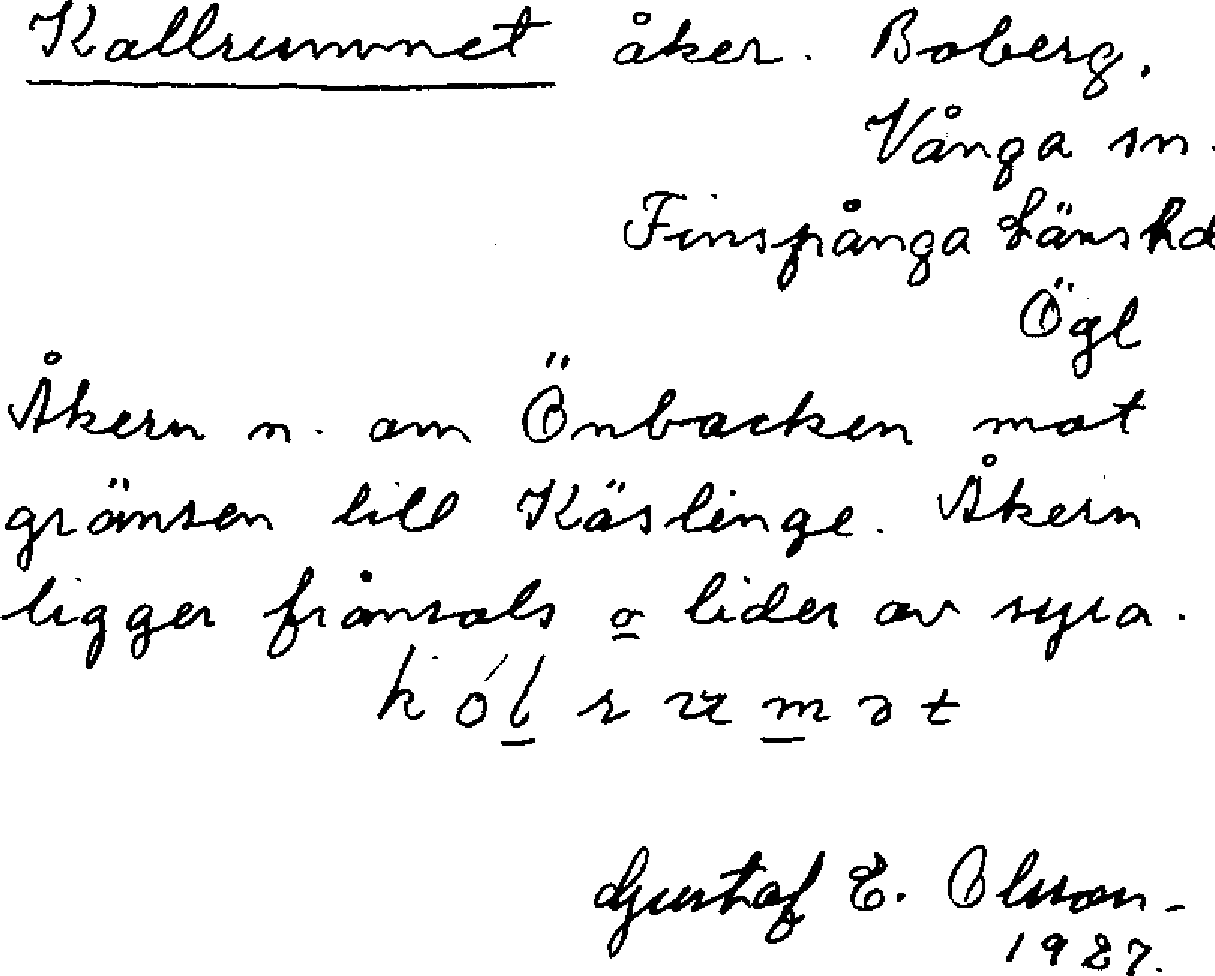 Kallrummet åker. Boberg,
Vånga sn.
Finspånga länshd
Ögl
Åkern n. om Önbacken mot
gränsen till Käslinge. Åkern
ligger frånsols o lider av syra.
Gustaf E. Olsson -
1927.